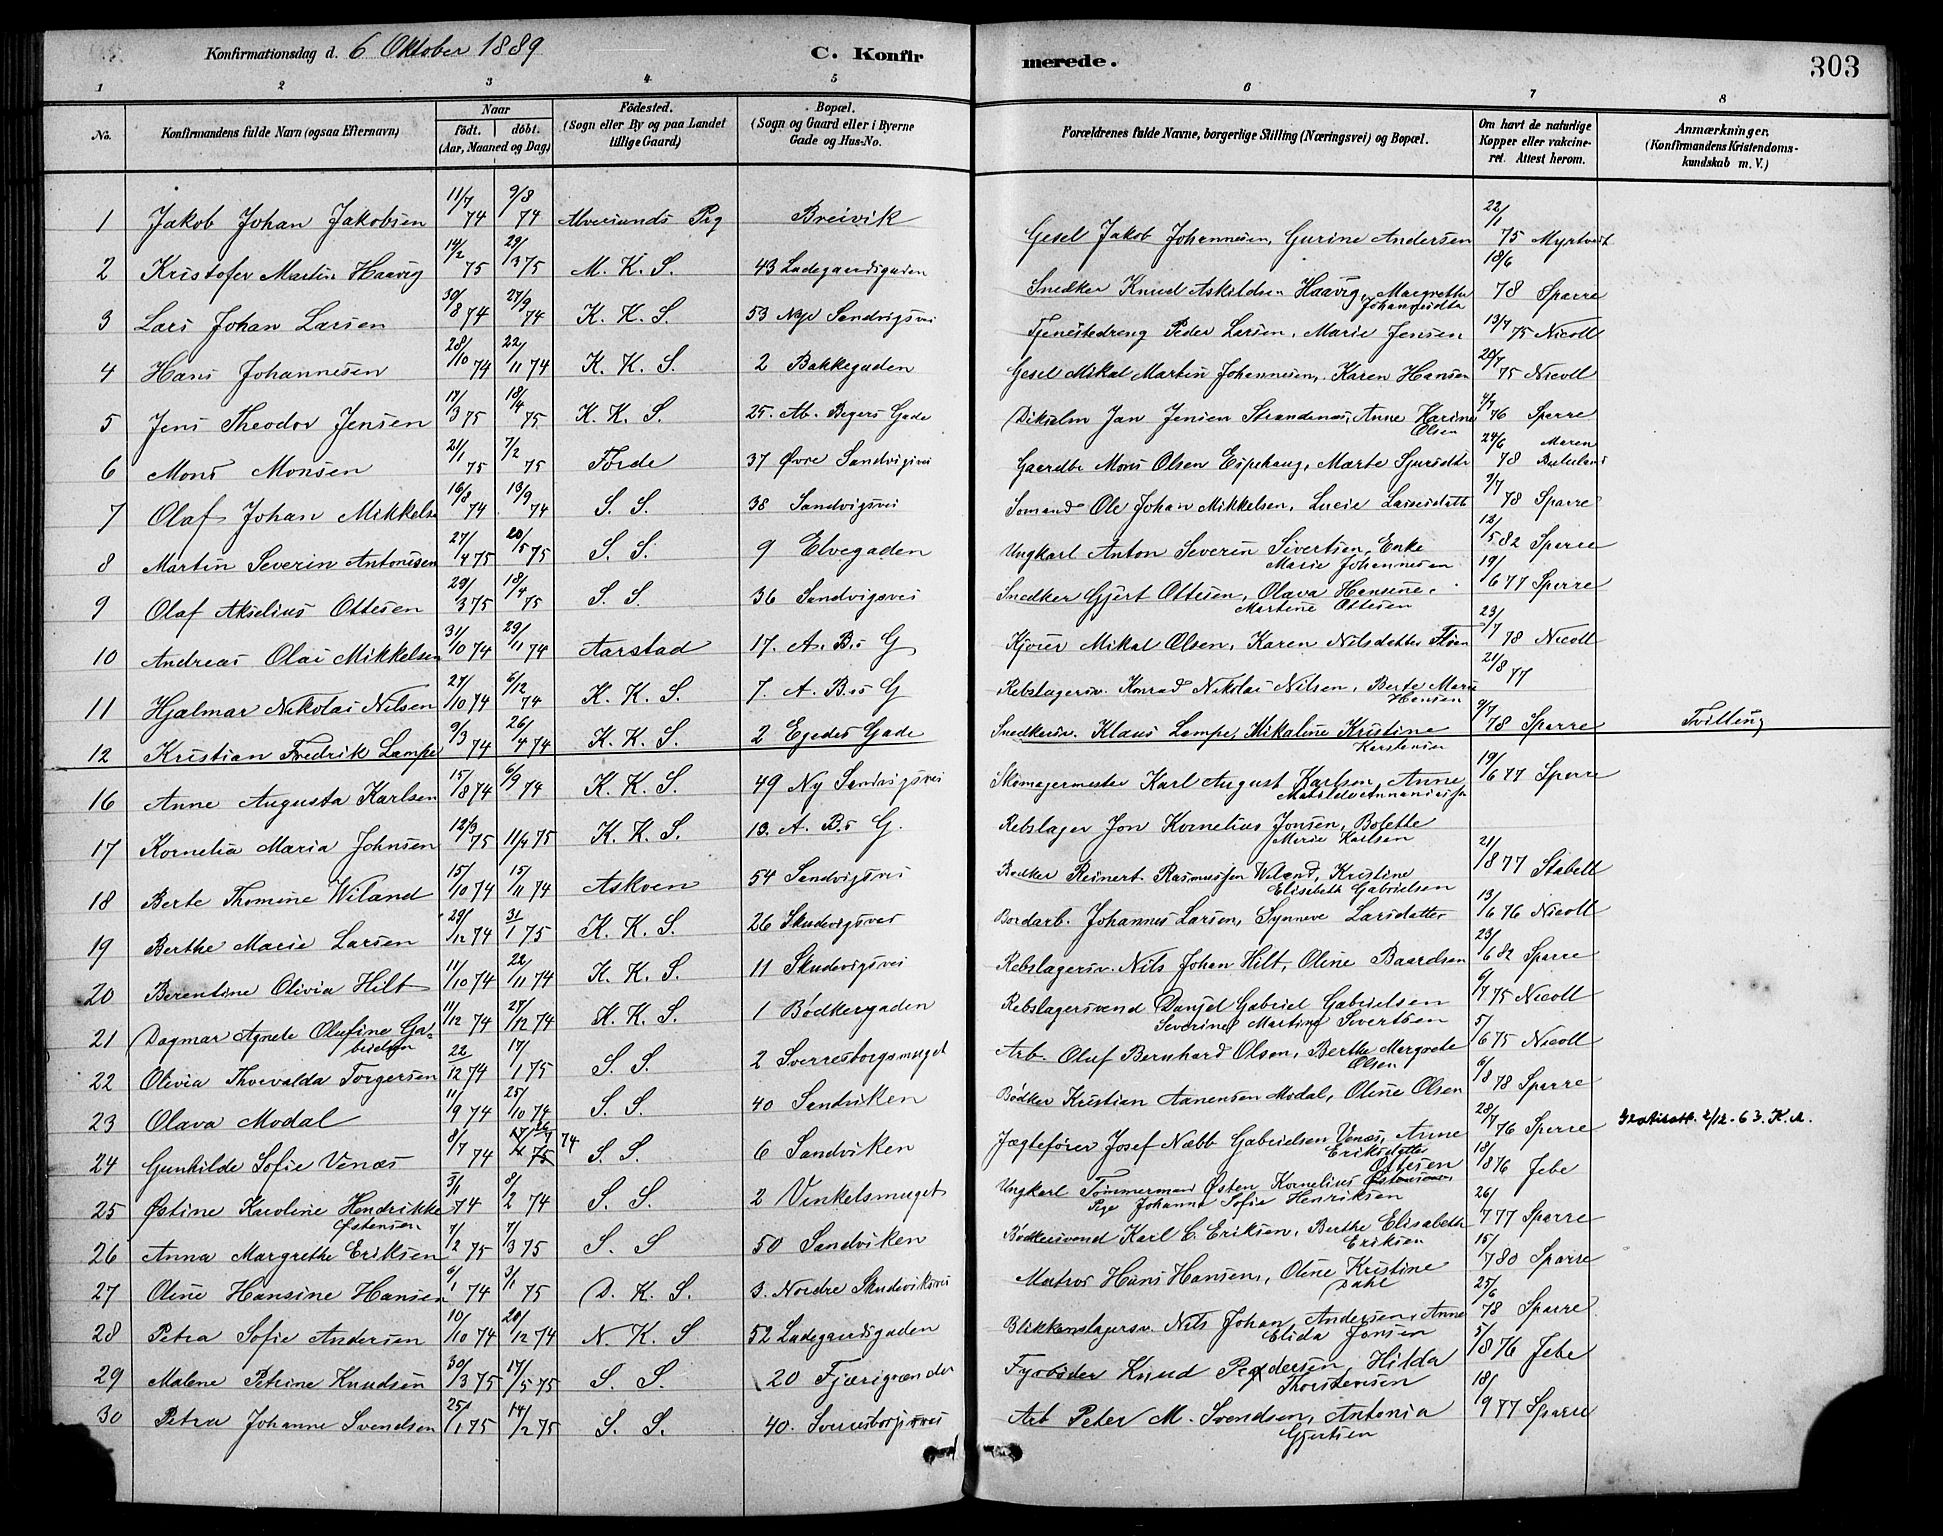 Konfirmationsdag d. 6 Oktober 1889 C. Konfirmerede. 303
1 2 3 4 5 6 7 8
No. Konfirmandens fulde Navn (ogsaa Efternavn) Naar födt. döbt. (Aar, Maaned og Dag) Födested. (Sogn eller By og paa Landet tillige Gaard) Bopæl. (Sogn og Gaard eller i Byerne Gade og Hus-No. Forældrenes fulde Navne, borgerlige Stilling (Næringsvei) og Bopæl. Om havt de naturlige Kopper eller vakcineret. Attest herom. Anmærkninger. (Konfirmandens Kristendomskundskab m. V.)
1 Jakob Johan Jakobsen 11/7 74 9/8 74 Alversunds Prg Breivik Gesel Jakob Johannesen, Gurine Andersen 22/1 75 Myrtvedt
2 Kristofer Martin Haavig 14/2 75 29/3 75 M. K. S. 43 Ladegaardsgaden Snedker Knud Askildsen Haavig, Margrethe Johannesdtr 18/6 78 Sparre
3 Lars Johan Larsen 30/8 74 27/9 74 K. K. S. 53 Nye Sandvigsvei Tjenestedreng Peder Larsen, Marie Jensen 13/7 75 Nicoll
4 Hans Johannesen 28/10 74 22/11 74 K. K. S. 2 Bakkegaden Gesel Mikal Martin Johannesen, Karen Hansen 20/7 75 Nicoll
5 Jens Theodor Jensen 17/3 75 18/4 75 K. K. S. 25. Ab. Begers Gade Jan Jensen Strandenæs, Anne Karine Olsen 7/7 76 Sparre
6 Mons Monsen 21/1 75 7/2 75 Förde 37 Øvre Sandvigsvei Gaardbr Mons Olsen Espehaug, Marte Sjursdtr 24/6 78 Maren
7 Olaf Johan Mikkelse 16/8 74 13/9 74 S. S. 38 Sandvigsvei Sømand Ole Johan Mikkelsen, Lucie Larsdatt 9/7 78 Sparre
8 Martin Severin Antonisen 27/4 75 20/5 75 S. S. 9 Elvegaden Ungkarl Anton Severin Sivertsen, Enke Marie Johannesen 12/5 82 Sparre
9 Olaf Akselius Ottesen 29/3 75 18/4 75 S. S. 36 Sandvigsvei Snedker Gjert Ottesen, Olava Hansine Martine Ottesen 19/6 77 Sparre
10 Andreas Olai Mikkelsen 31/10 74 29/11 74 Aarstad 17. A. B.s G Mikal Olsen, Karen Nilsdatter Fløen 23/7 78 Nicoll
11 Hjalmar Nikolai Nilsen 27/10 74 6/12 74 K. K. S. 7. A. B.s G Rebslagersv. Konrad Nikolai Nilsen, Berte Marie Hansen 21/8 77
12 Kristian Fredrik Lampe 9/3 74 26/4 74 K. K. S. 2 Egedes Gade Snedkersv. Klaus Lampe, Mikaline Kristine Karstensen 9/7 78 Sparre Tvilling
16 Anne Augusta Karlsen 15/8 74 6/9 74 K. K. S. 49 Ny Sandvigsvei Skomagermester Karl August Karlsen, Anne 19/6 77 Sparre
17 Kornelia Maria Johnsen 12/3 75 11/4 75 K. K. S. 13. A. B.s G. Rebslager Jon Kornelius Jonsen, Bolette Marie Karlsen
18 Berte Thomine Wiland 15/10 74 15/11 74 Askøen 54 Sandvigsvei Bødker Reinert Rasmussen Wiland, Kristine Elisabeth Gabrielsen 21/8 77 Stabell
19 Berthe Marie Larsen 29/12 74 31/1 75 K. K. S. 26 Skudevigsvei Bordarb. Johannes Larsen, Synneve Larsdatter 13/6 76 Nicoll
20 Berentine Olivia Hilt 11/10 74 22/11 74 K. K. S. 11 Skudevigsvei Rebslagersv. Nils Johan Hilt, Oline Baardsen 23/6 82 Sparre
21 Dagmar Agnete Olufine Gabrielsen 11/12 74 27/12 74 K. K. S. 1 Bødkergaden Rebslagersvend Danjel Gabriel Gabrielsen Severine Martine Sivertsen 6/7 75 Nicoll
22 Olivia Thorvalda Torgersen 22/12 74 17/1 75 S. S. 2 Sverresborgsmuget Arb. Oluf Bernhard Olsen, Berthe Margrete Olsen 5/6 75 Nicoll
23 Olava Modal 11/9 74 25/10 74 S. S. 40 Sandviken Bødker Kristian Aanensen Modal, Oline Olsen 6/8 78 Sparre
24 Gunhilde Sofie Venæs 8/7 74 74 S. S. 6 Sandviken Jægtefører Josef Næbb Gabrielsen Venæs, Anne Eriksdatter 28/7 76 Sparre 2/12-63. K. A.
25 Østine Karoline Hendrikke Østensen 3/1 74 8/2 74 S. S. 2 Vinkelsmuget Ungkarl Tømmermand Østen Kornelius Ottesen Pige Johanne Sofie Henriksen 18/8 76 Jebe
26 Anna Margrethe Eriksen 7/2 75 7/3 75 S. S 50 Sandviken Bødkersvend Karl E. Eriksen, Berthe Elisabeth Eriksen 26/7 77 Sparre
27 Oline Hansine Hansen 6/1 74 3/1 75 D. K. S. 3. Nordre Skudeviksvei Matros Hans Hansen, Oline Kristine Dahl 15/7 80 Sparre
28 Petra Sofie Andersen 10/10 74 20/12 74 N. K. S 52 Ladegaardsgaden Blikkenslagersv. Nils Johan Andersen, Anne Elida Jensen 25/6 78 Sparre
29 Malene Petrine Knudsen 30/3 75 17/5 75 S. S. 20 Fjærigrænden Fyrbøder Knud Pedersen, Hilda Thorstensen 5/8 76 Jebe
30 Petra Johanne Svendsen 25/1 75 14/2 75 S. S. 40. Sverresborgsvei Arb Peter M. Svendsen, Antonia Gjertsen 18/9 77 Sparre